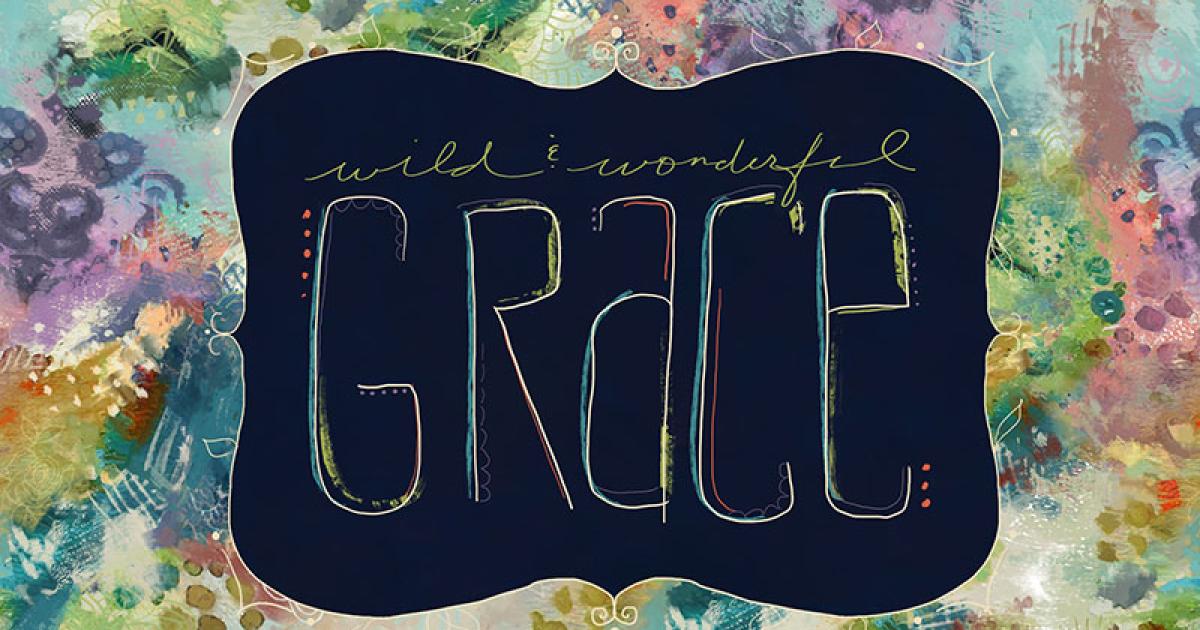 wild & wonderful
GRaCe